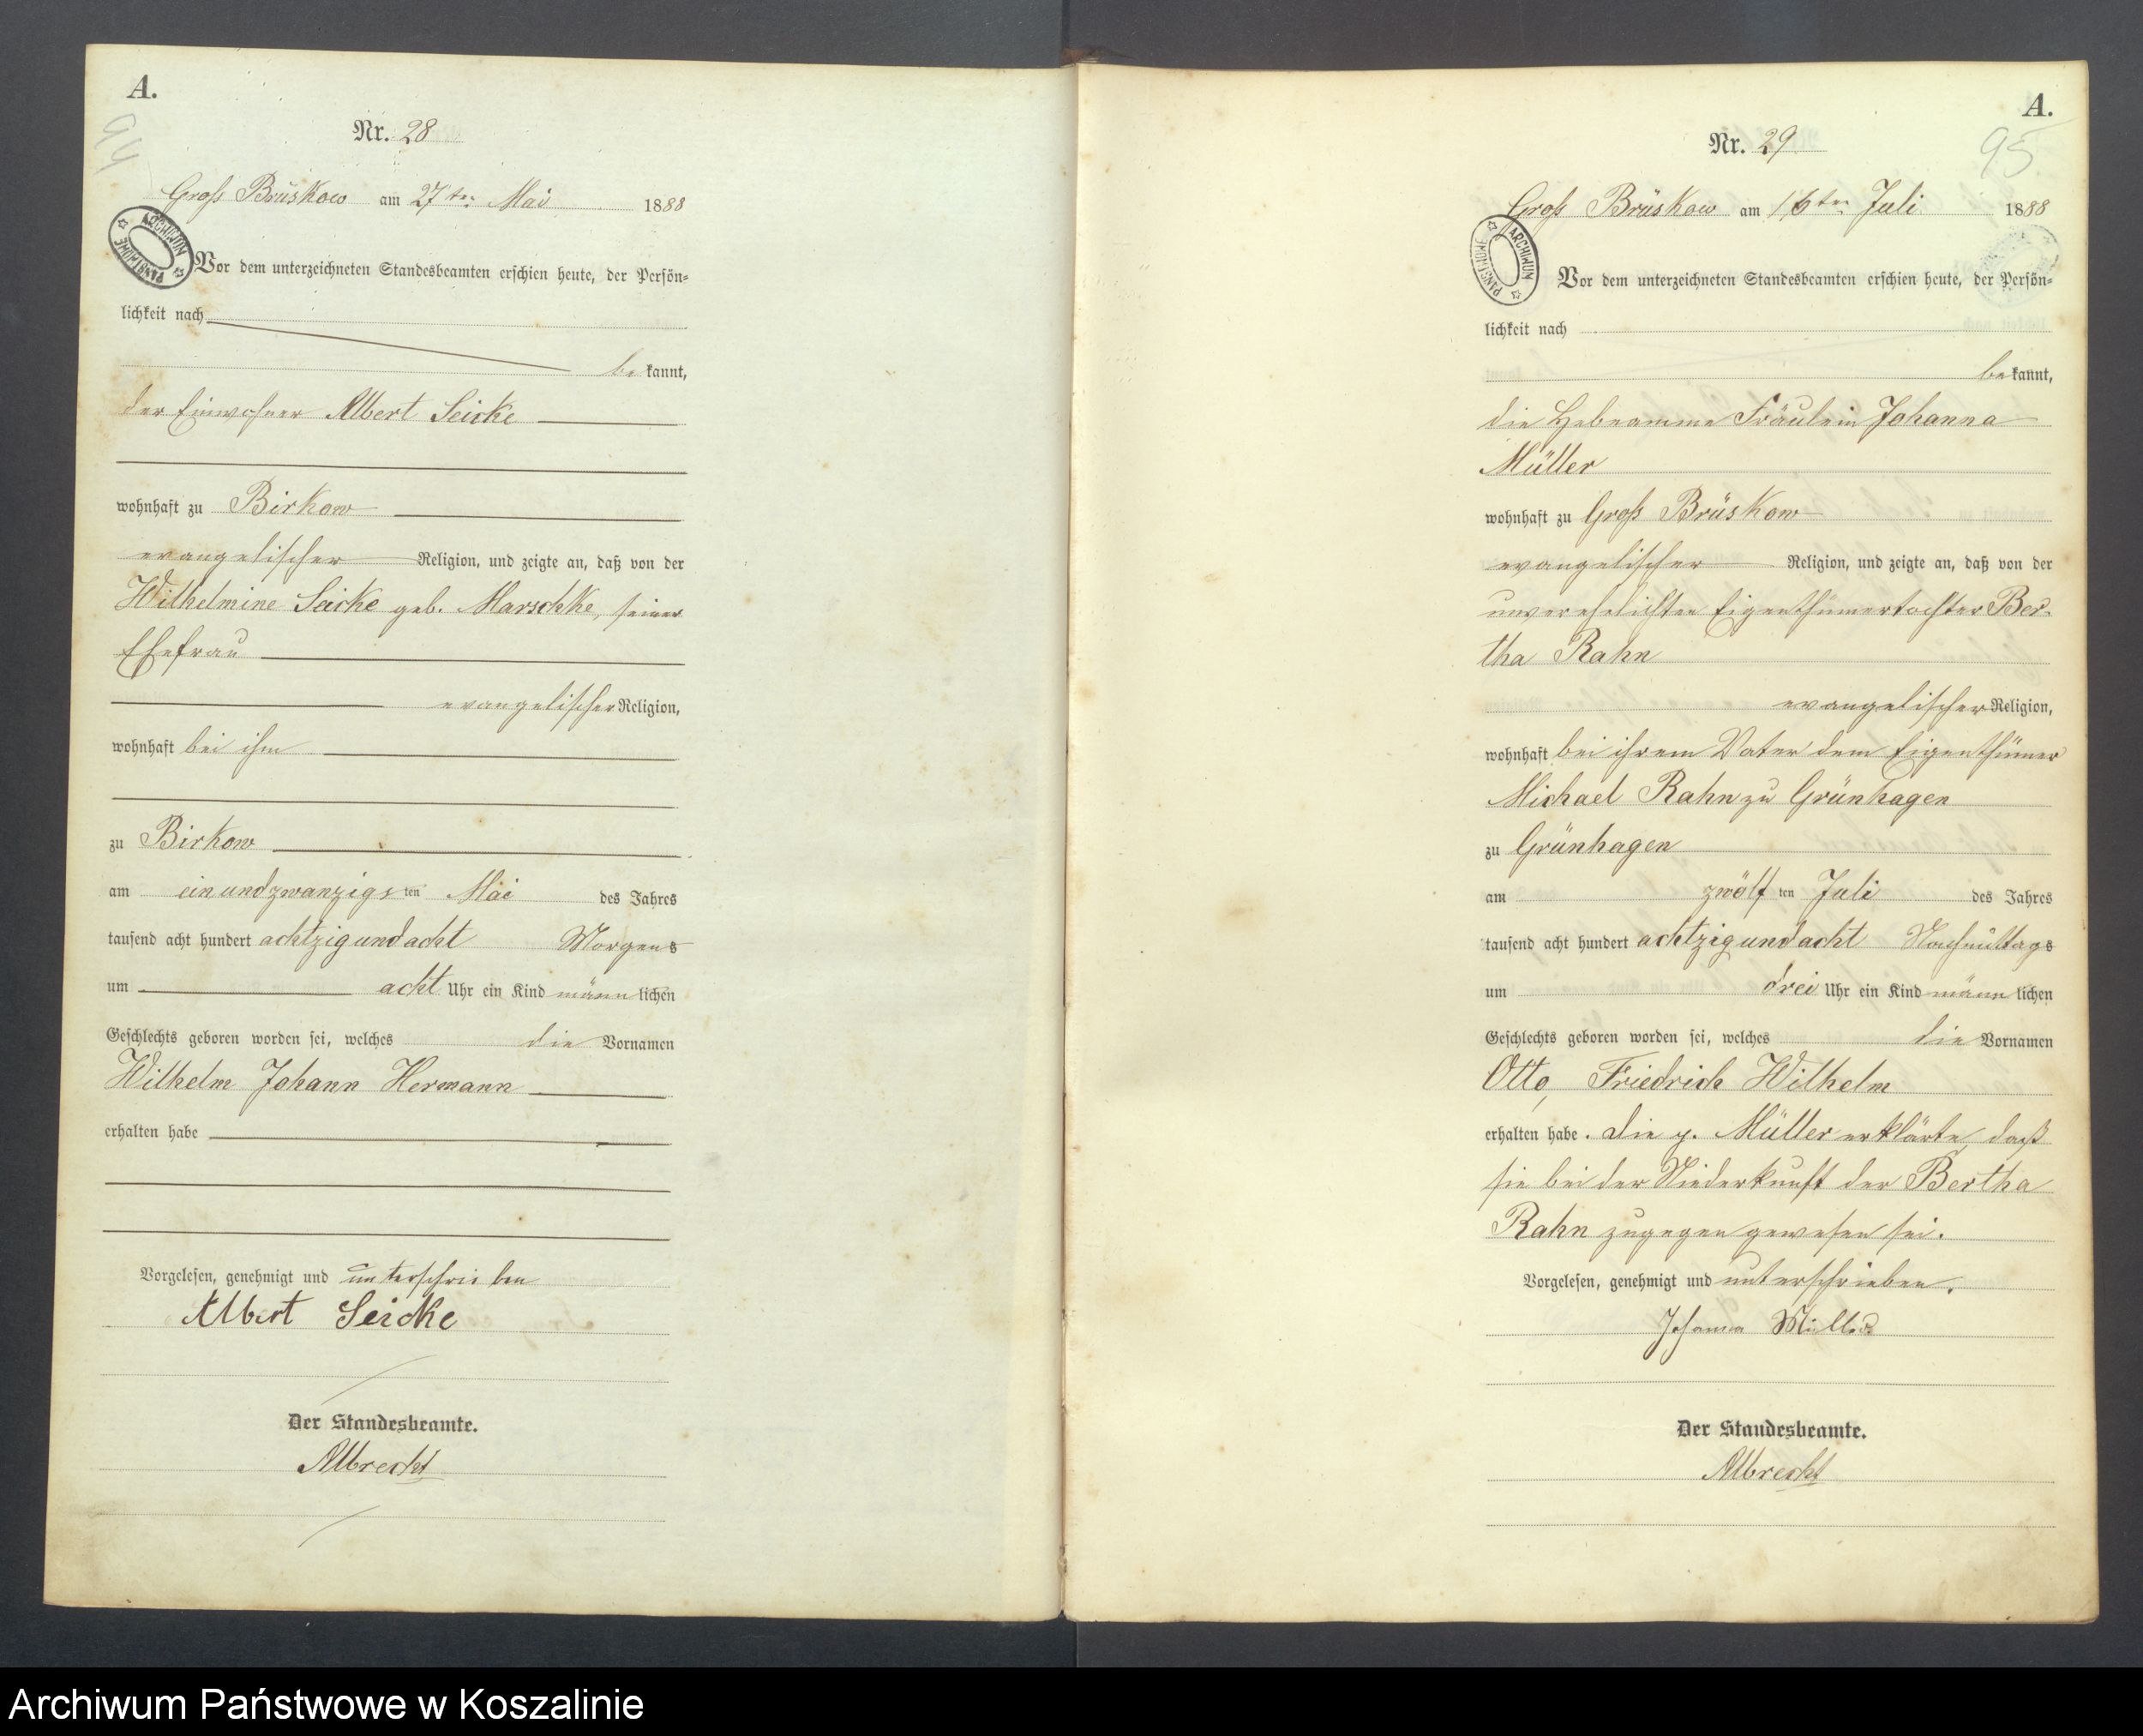 A.
94
Nr. 28
Groß Brüskow am 27ten Mai 1888
ARCHIWUM PAŃSTWOWE
Vor dem unterzeichneten Standesbeamten erschien heute, der Persön-
lichkeit nach
bekannt,
der Einwohner Albert Seicke
wohnhaft zu Birkow
evangelischer Religion, und zeigte an, daß von der
Wilhelmine Seicke geb. Marschke, seiner
Ehefrau
evangelischer Religion,
wohnhaft bei ihm
zu Birkow
am einundzwanzigsten Mai des Jahres
tausend acht hundert achtzigundacht Morgens
um acht Uhr ein Kind männlichen
Geschlechts geboren worden sei, welches die Vornamen
Wilhelm Johann Hermann
erhalten habe
Vorgelesen, genehmigt und unterschrieben
Albert Seicke
Der Standesbeamte.
Albrecht
A.
95
Nr. 29
Groß Brüskow am 16ten Juli 1888
ARCHIWUM PAŃSTWOWE
Vor dem unterzeichneten Standesbeamten erschien heute, der Persön-
lichkeit nach
bekannt,
die Hebeamme Fräulein Johanna
Müller
wohnhaft zu Groß Brüskow
evangelischer Religion, und zeigte an, daß von der
unverehelichten Eigenthümertochter Ber-
tha Rahn
evangelischer Religion,
wohnhaft bei ihrem Vater dem Eigenthümer
Michael Rahn zu Grünhagen
zu Grünhagen
am zwölften Juli des Jahres
tausend acht hundert achtzigundacht Nachmittags
um drei Uhr ein Kind männlichen
Geschlechts geboren worden sei, welches die Vornamen
Otto, Friedrich Wilhelm
erhalten habe. Die p. Müller erklärte, daß
sie bei der Niederkunft der Bertha
Rahn zugegen gewesen sei.
Vorgelesen, genehmigt und unterschrieben.
Johanna Müller
Der Standesbeamte.
Albrecht
Archiwum Państwowe w Koszalinie